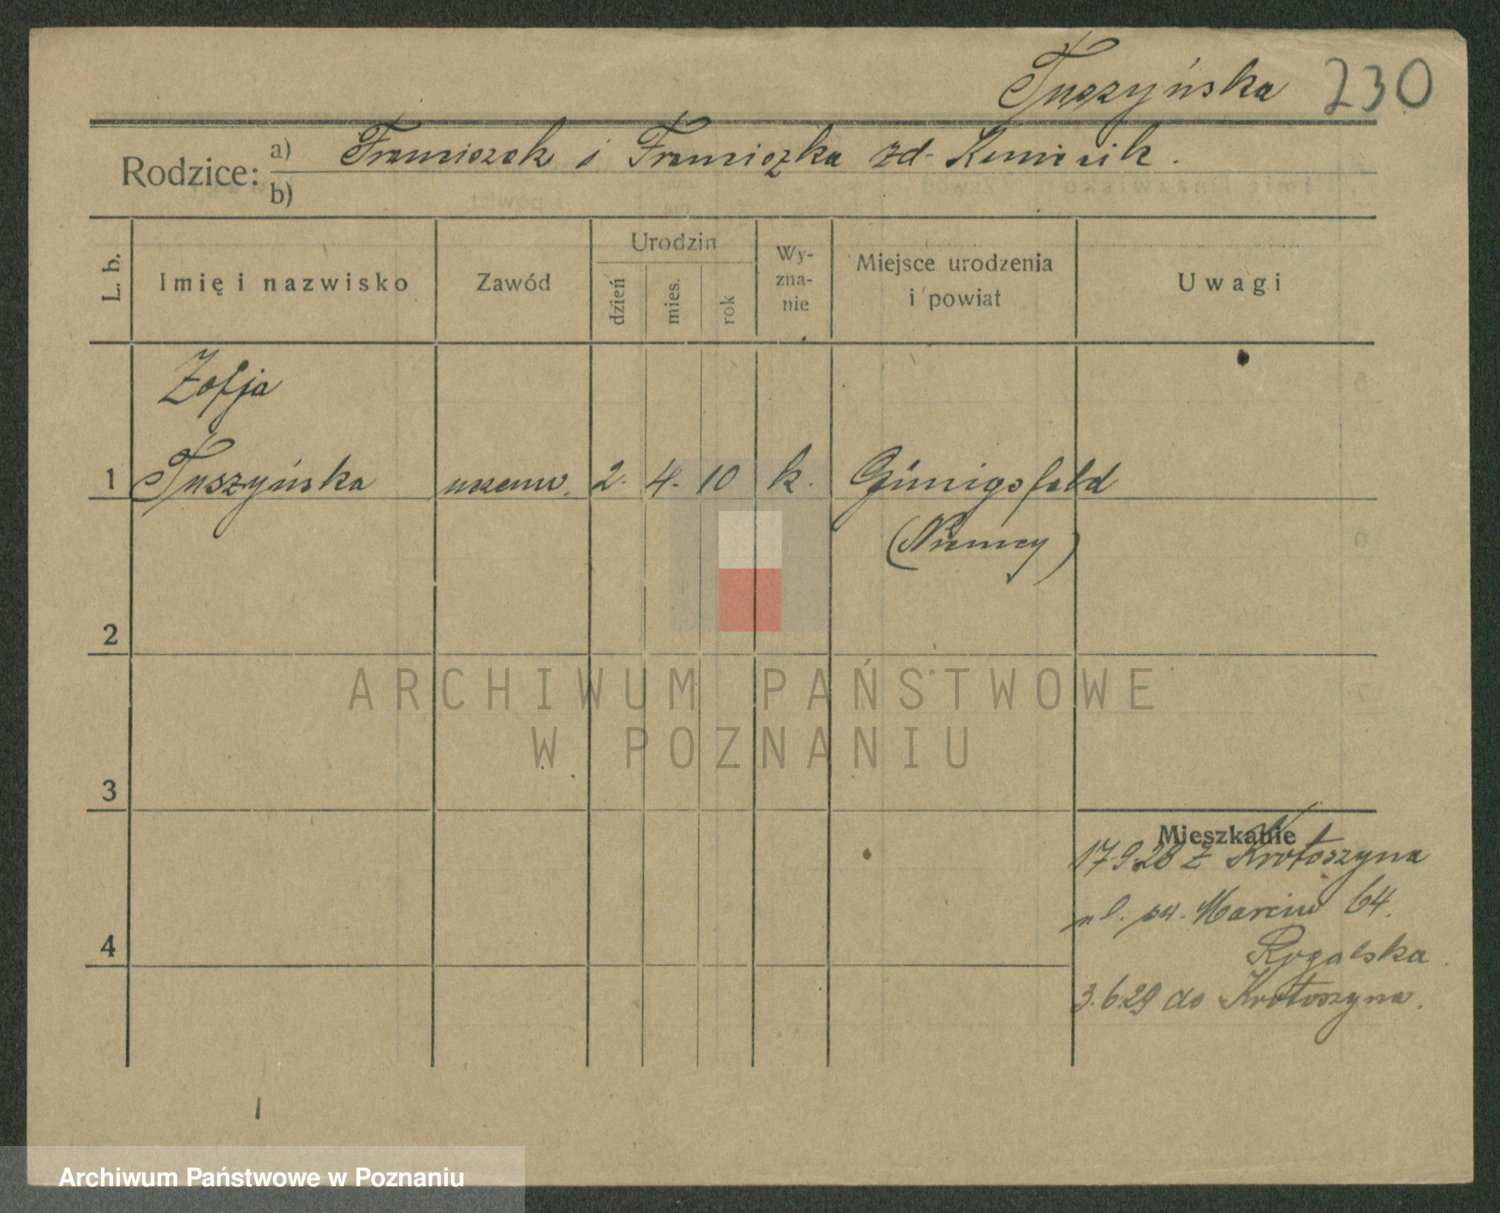 Tuszyńska 230
Rodzice: a) Franciszek i Franciszka zd.
b)
L. b. Imię i nazwisko Zawód Urodzin dzień mies. rok Wyznanie Miejsce urodzenia i powiat Uwagi
Zofja
1 Tuszyńska uczenw. 2. 4. 10 k. Günigsfeld
(Niemcy)
2
ARCHIWUM PAŃSTWOWE
W POZNANIU
3
Mieszkanie
17.9.28 z Krotoszyna
ul. św. Marcin 64.
4
Rogalska.
3.6.29 do Krotoszyna.
Archiwum Państwowe w Poznaniu